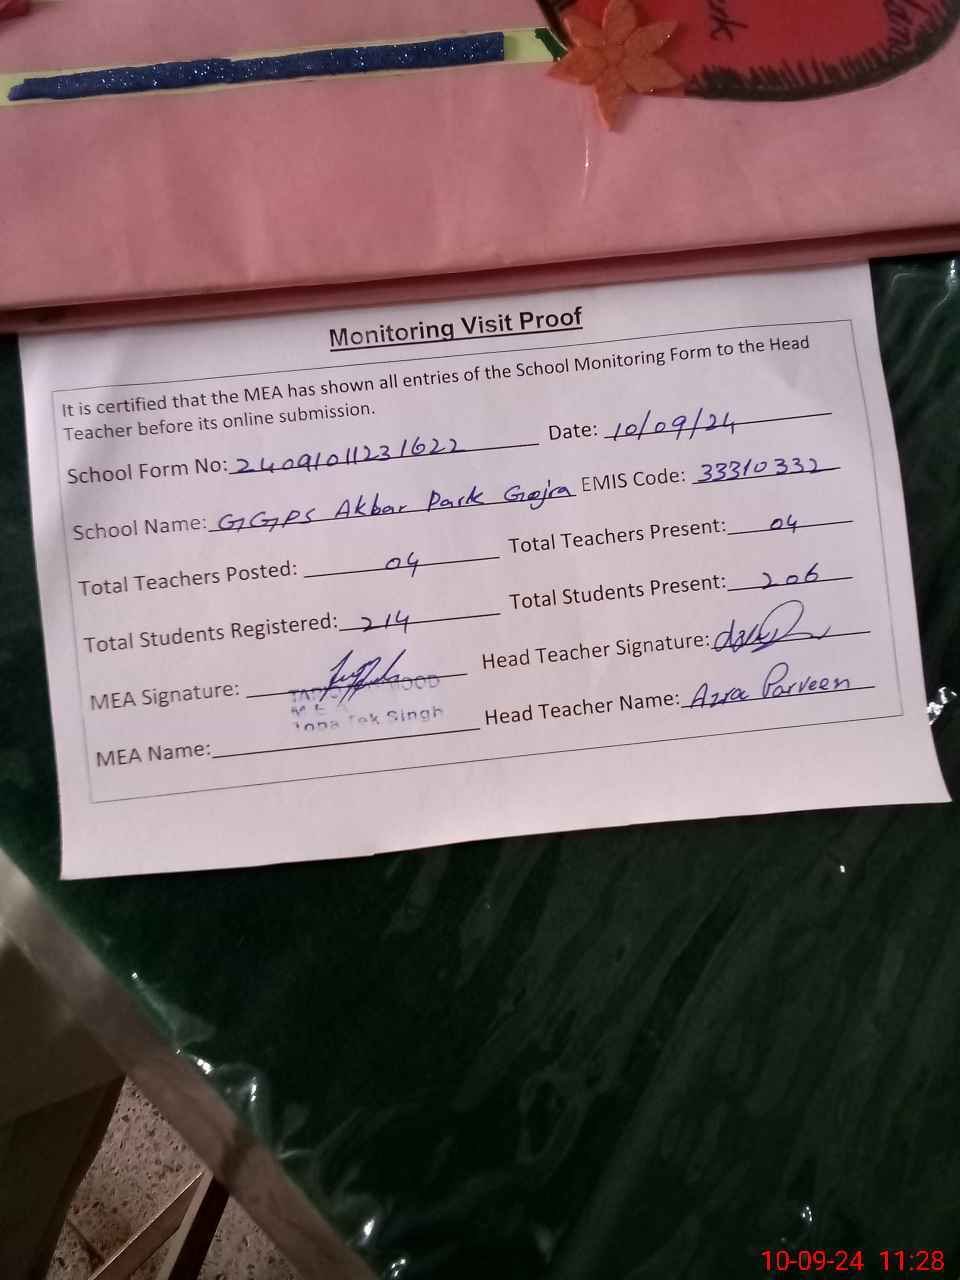 Monitoring Visit Proof
It is certified that the MEA has shown all entries of the School Monitoring Form to the Head
Teacher before its online submission.
School Form No: 2409101123 1622 Date: 10/09/24
School Name: GGPS Akbar Park Gojra EMIS Code: 33310332
Total Teachers Posted: 04 Total Teachers Present: 04
Total Students Registered: 214 Total Students Present: 206
MEA Signature: Head Teacher Signature:
Tek Singh
MEA Name: Head Teacher Name: Azra Parveen
10-09-24 11:28